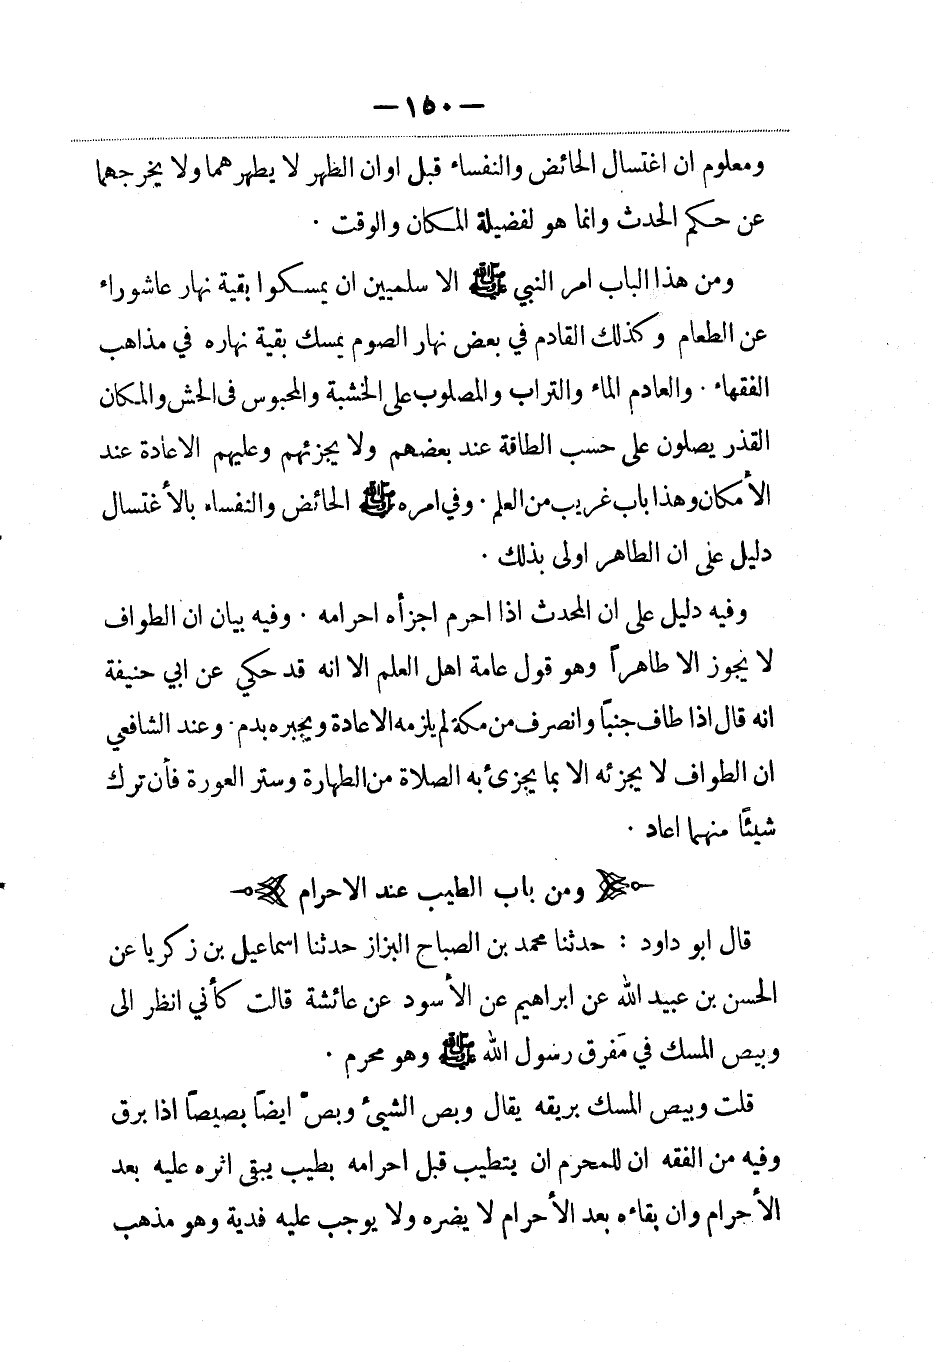 — ١٥٠ —
ومعلوم ان اغتسال الحائض والنفساء قبل اوان الظهر لا يطهرهما ولا يخرجهما
عن حكم الحدث وانما هو لفضيلة المكان والوقت ·
ومن هذا الباب امر النبي ﷺ الا سلميين ان يمسكوا بقية نهار عاشوراء
عن الطعام وكذلك القادم في بعض نهار الصوم يمسك بقية نهاره في مذاهب
الفقهاء · والعادم الماء والتراب والمصلوب على الخشبة والمحبوس فى الحش والمكان
القذر يصلون على حسب الطاقة عند بعضهم ولا يجزئهم وعليهم الاعادة عند
الأمكان وهذا باب غريب من العلم · وفي امره ﷺ الحائض والنفساء بالأغتسال
دليل على ان الطاهر اولى بذلك ·
وفيه دليل على ان المحدث اذا احرم اجزأه احرامه · وفيه بيان ان الطواف
لا يجوز الا طاهراً وهو قول عامة اهل العلم الا انه قد حكي عن ابي حنيفة
انه قال اذا طاف جنبًا وانصرف من مكة لم يلزمه الاعادة ويجبره بدم · وعند الشافعي
ان الطواف لا يجزئه الا بما يجزئ به الصلاة من الطهارة وستر العورة فأن ترك
شيئًا منهما اعاد ·
ومن باب الطيب عند الاحرام
قال ابو داود : حدثنا محمد بن الصباح البزاز حدثنا اسماعيل بن زكريا عن
الحسن بن عبيد الله عن ابراهيم عن الأسود عن عائشة قالت كأني انظر الى
وبيص المسك في مَفرق رسول الله ﷺ وهو محرم ·
قلت وبيص المسك بريقه يقال وبص الشيئ وبصّ ايضاً بصيصاً اذا برق
وفيه من الفقه ان للمحرم ان يتطيب قبل احرامه بطيب يبقى اثره عليه بعد
الأحرام وان بقاءه بعد الأحرام لا يضره ولا يوجب عليه فدية وهو مذهب